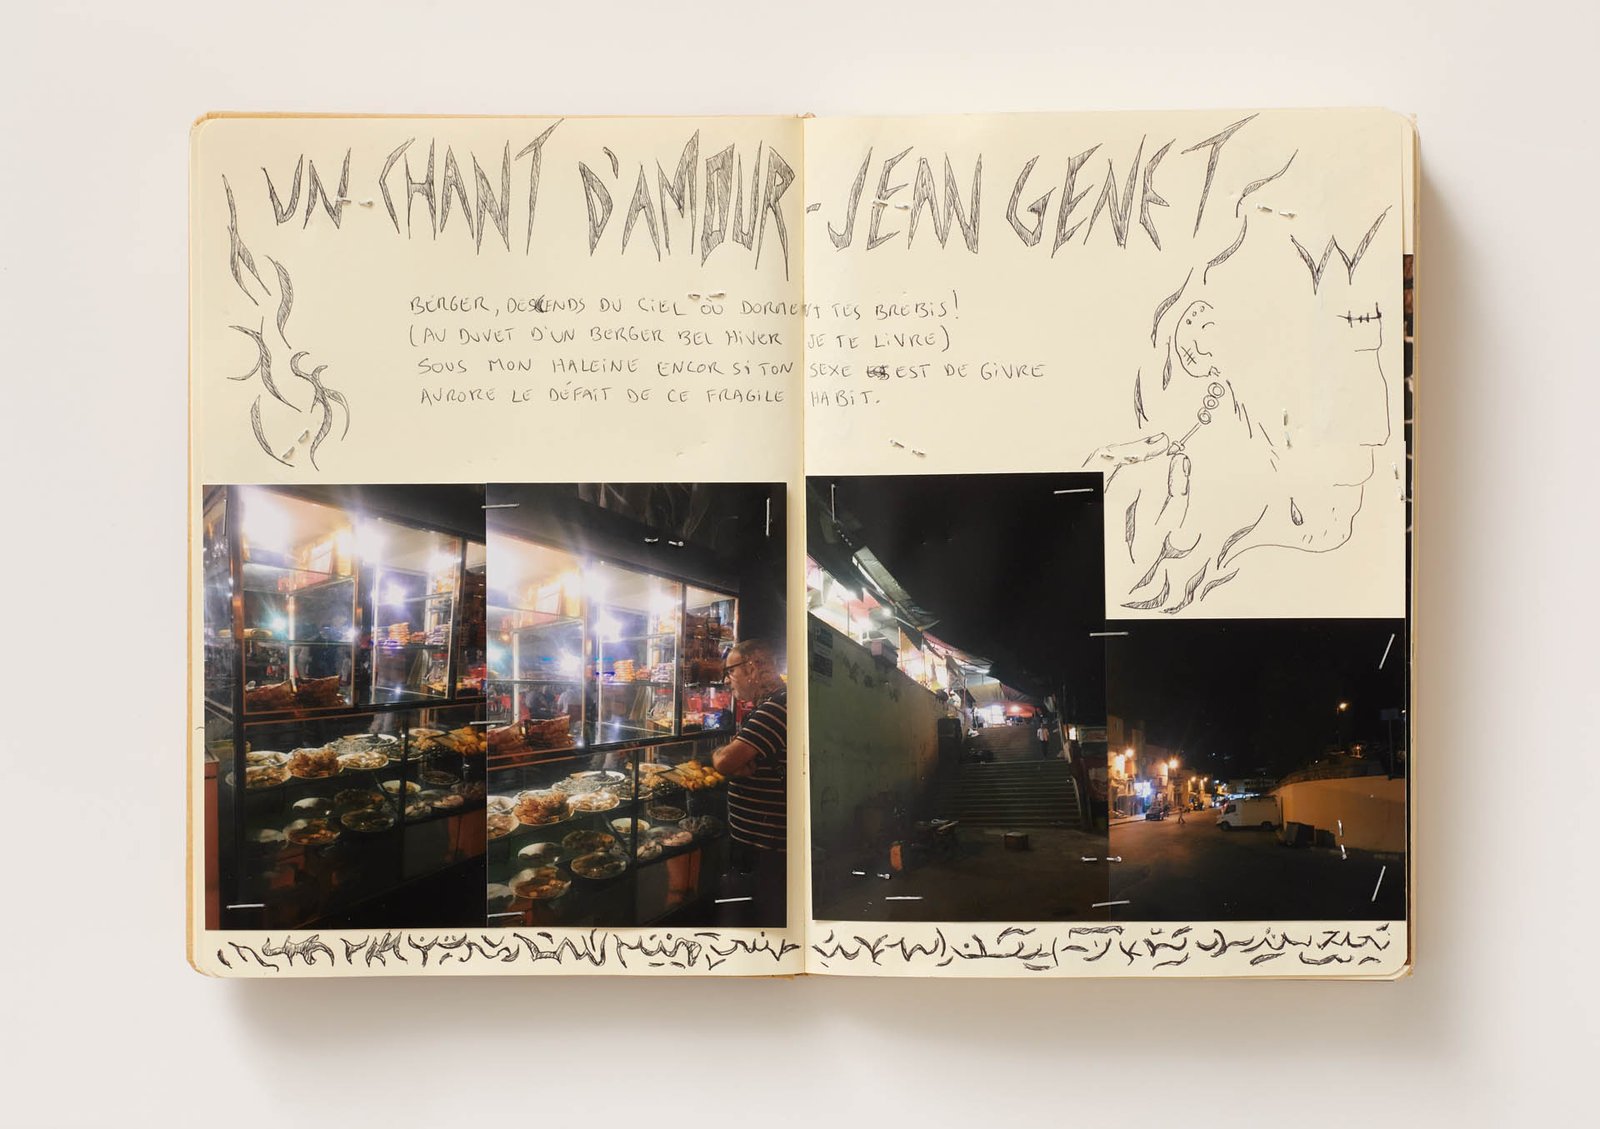 UN CHANT D'AMOUR - JEAN GENET
W
BERGER, DESCENDS DU CIEL OÙ DORMENT TES BREBIS!
(AU DUVET D'UN BERGER BEL HIVER JE TE LIVRE)
SOUS MON HALEINE ENCOR SI TON SEXE EST DE GIVRE
AURORE LE DÉFAIT DE CE FRAGILE HABIT.